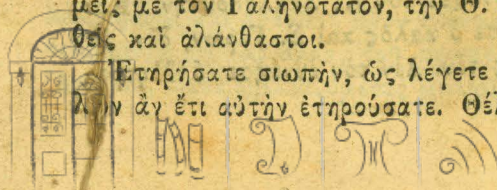 μεῖς μὲ τὸν Γαληνότατον, τὴν Θ.
θεῖς καὶ ἀλάνθαστοι.
Ἐτηρήσατε σιωπὴν, ὡς λέγετε
ἂν ἔτι αὐτὴν ἐτηρούσατε. Θέλ